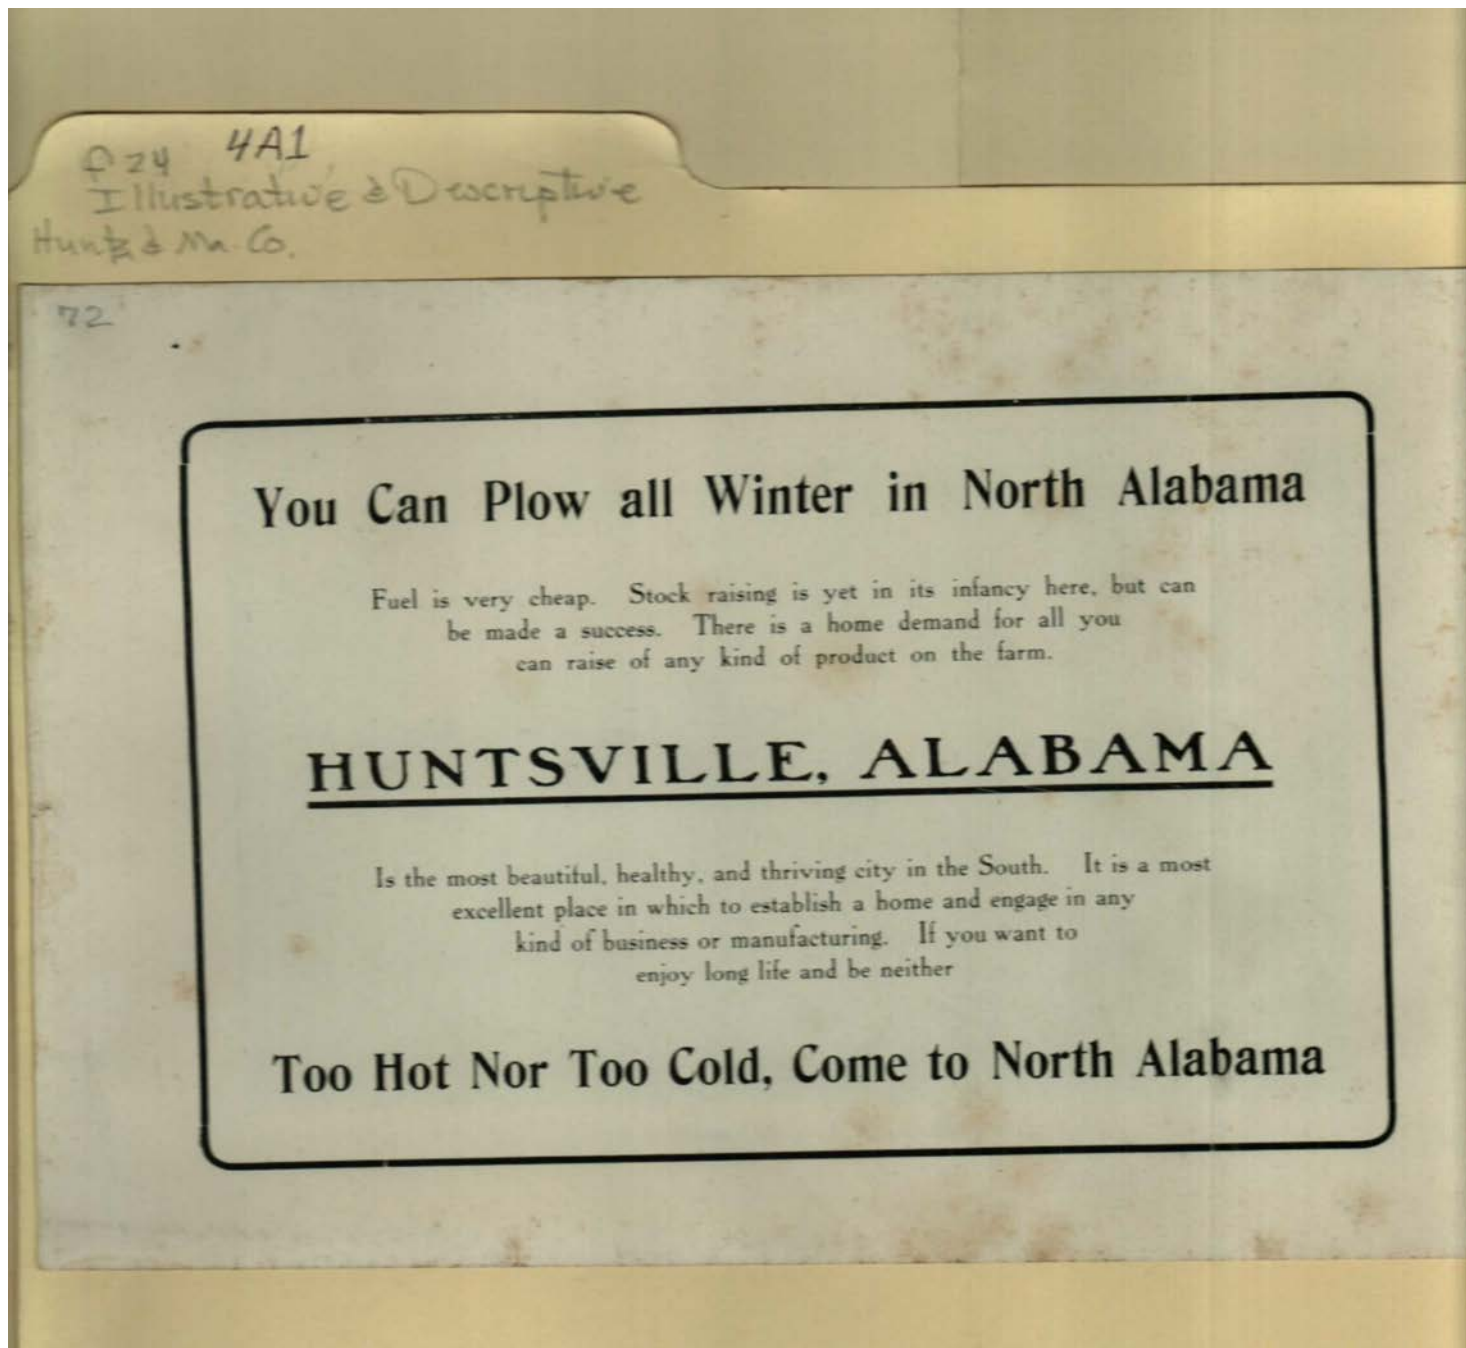 4A1
f24
Illustrative & Descriptive
Hunts & Ma. Co.
72
You Can Plow all Winter in North Alabama
Fuel is very cheap. Stock raising is yet in its infancy here, but can
be made a success. There is a home demand for all you
can raise of any kind of product on the farm.
HUNTSVILLE, ALABAMA
Is the most beautiful, healthy, and thriving city in the South. It is a most
excellent place in which to establish a home and engage in any
kind of business or manufacturing. If you want to
enjoy long life and be neither
Too Hot Nor Too Cold, Come to North Alabama